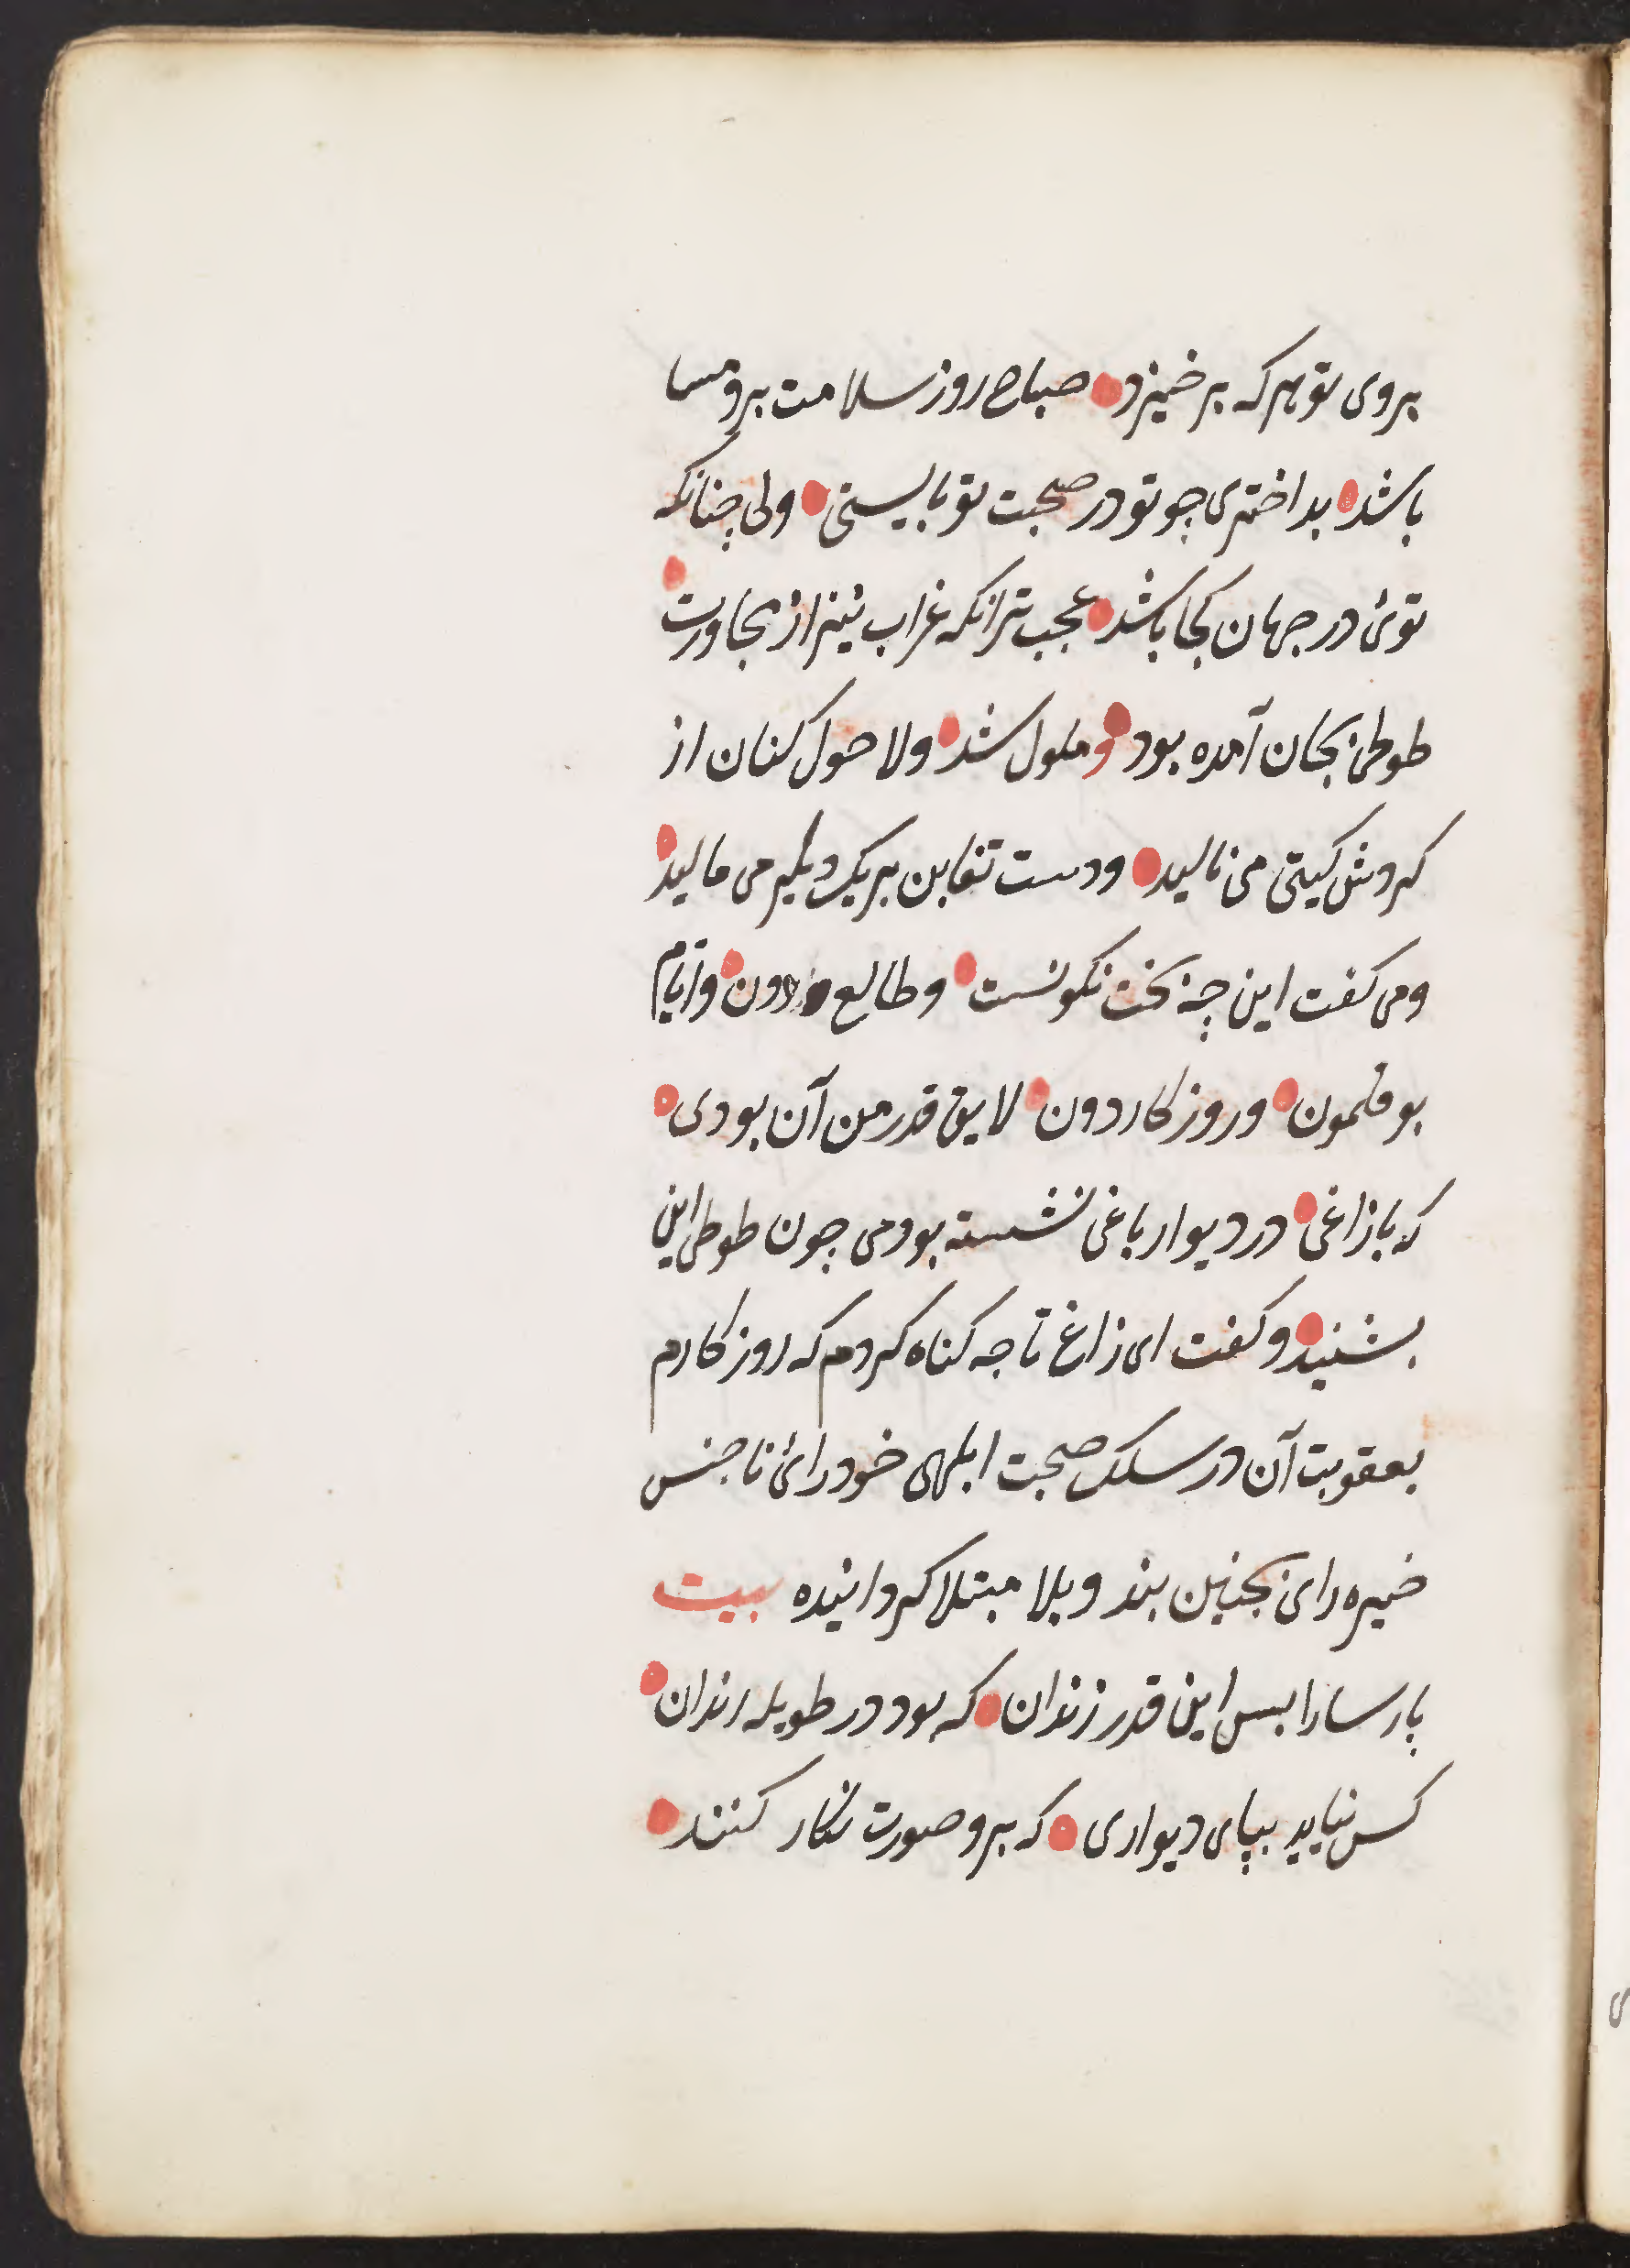 بروی تو هر که بر خیزد صباح روز سلامت برو مسا
باشد بد اختری جو تو در صحبت تو بایستی ولی چنانکه
توئ در جهان کجا باشد عجب ترانکه غراب نیز از مجاورت
طوطی بجان آمده بود و ملول شد ولا حول کنان از
کردش کیتی می نالید ودست تغابن بر یک دیگر می مالید
ومی کفت این چه بخت نکونست وطالع دون وایام
بوقلمون وروزکار دون لایق قدر من آن بودی
که با زاغی در دیوار باغی نشسته بودمی جون طوطی این
بشنید وکفت ای زاغ تا جه کناه کردم که روزکارم
بعقوبت آن در سلک صحبت ابلهی خود رائ نا جنس
خیره رای بجنین بند وبلا مبتلا کردانیده بیت
پارسا را بس این قدر زندان که بود در طویله رندان
کس نیاید بپای دیواری که برو صورت نکار کنند